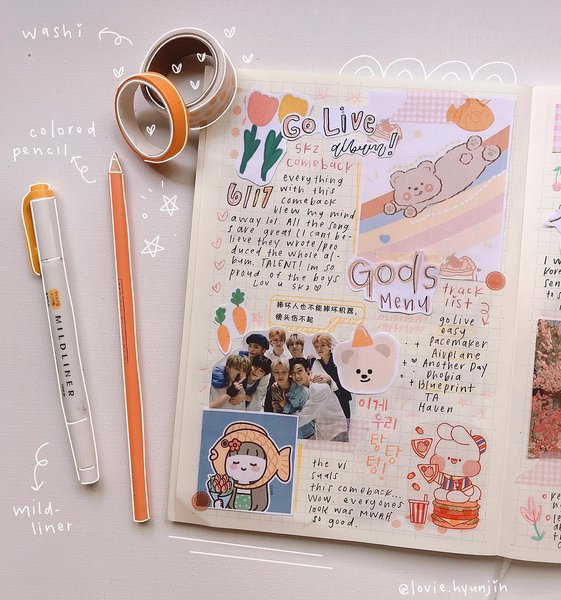 washi
colored
pencil
MILDLINER
mild-
liner
Go Live
album!!
SKZ
comeback
6/17
everything
with this
comeback
blew my mind
away lol. All the song
s are great (I cant be-
lieve they wrote/pro
duced the whole al-
bum. TALENT! Im so
proud of the boys
Lov u SKZ
Gods
MENU
track
list
go live
easy
Pacemaker
Airplane
Another Day
Phobia
Blueprint
TA
Haven
摔坏人也不能摔坏机器,
镜头伤不起
이게
우리
탕
탕
탕!
the vi
suals
this comeback...
Wow. everyones
look was MWAH.
so good.
@lovie.hyunjin